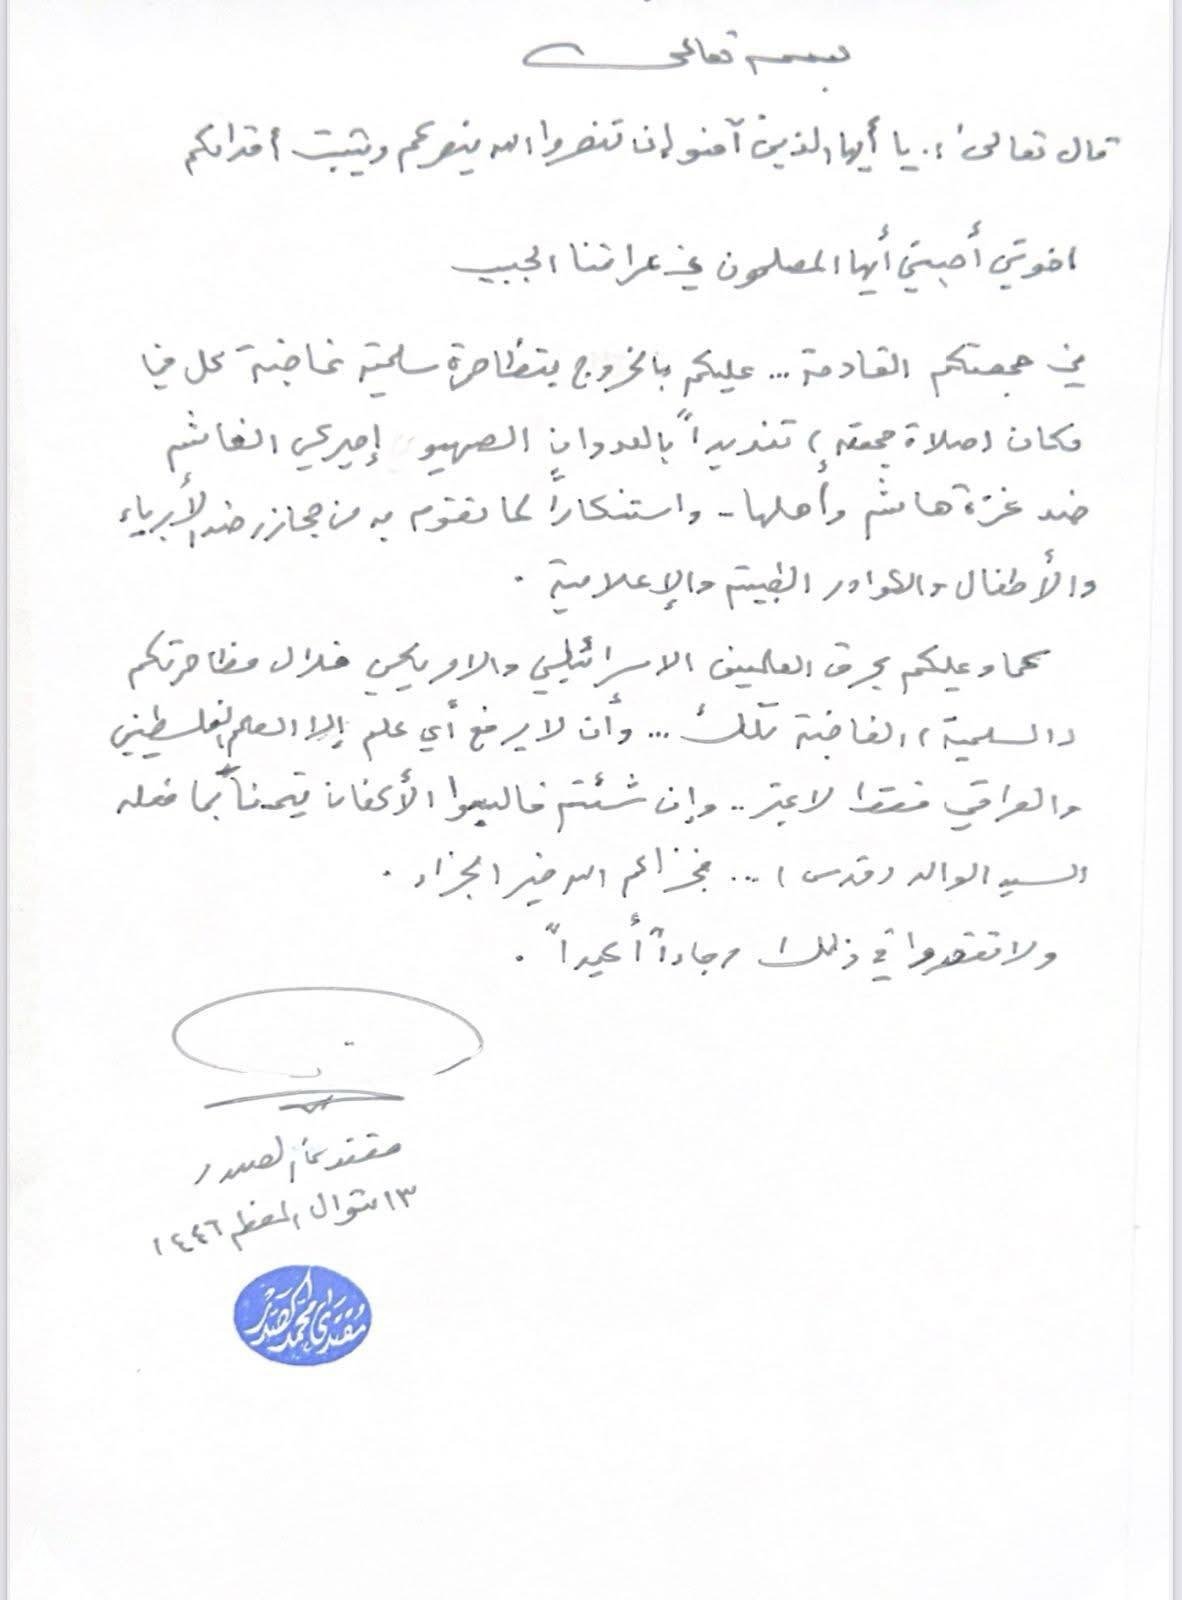 بسمه تعالى
قال تعالى: يا أيها الذين آمنوا إن تنصروا الله ينصركم ويثبت أقدامكم
اخوتي أحبتي أيها المصلون في عراقنا الحبيب
في جمعتكم القادمة ... عليكم بالخروج بتظاهرة سلمية غاضبة كل في
مكان (صلاة جمعته) تنديداً بالعدوان الصهيو إميركي الغاشم
ضد غزة هاشم وأهلها .. واستنكاراً لما تقوم به من مجازر ضد الأبرياء
والأطفال والكوادر الطبية والإعلامية .
كما وعليكم بحرق العلمين الاسرائيلي والامريكي خلال مظاهرتكم
(السلمية) الغاضبة تلك ... وأن لا يرفع أي علم إلا العلم الفلسطيني
والعراقي فقط لا غير .. وإن شئتم فالبسوا الأكفان تيمناً بما فعله
السيد الوالد (قدس) ... فجزاكم الله خير الجزاء .
ولا تقصروا في ذلك رجاءاً أكيداً .
مقتدى الصدر
١٣ شوال المعظم ١٤٤٦
مقتدى محمد الصدر